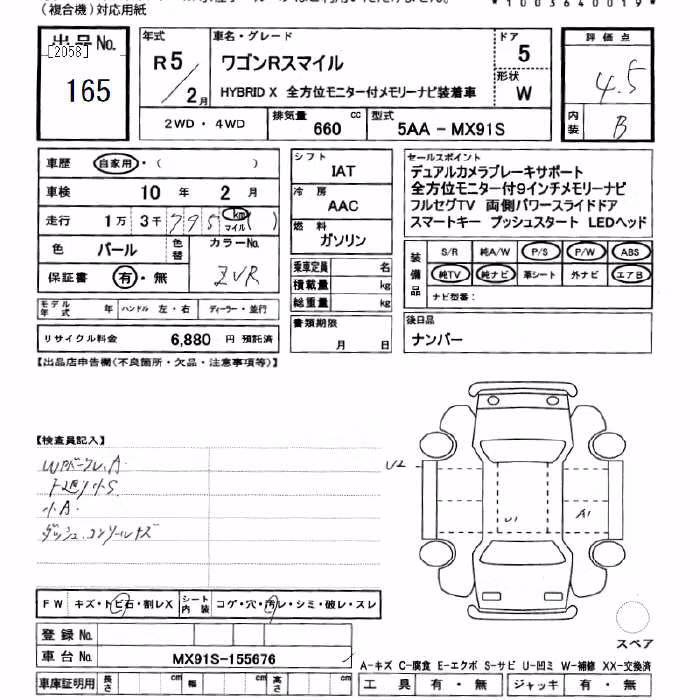 (複合機)対応用紙
*1003640019*
出品No.
[2058]
165
年式
R5/2月
車名・グレード
ワゴンRスマイル
HYBRID X 全方位モニター付メモリーナビ装着車
ドア
5
形状
W
評価点
4.5
内装
B
2WD・4WD
排気量
660 cc
型式
5AA - MX91S
車歴 自家用・( )
車検 10年 2月
走行 1万 3千 795 km マイル ( )
色 パール
色替
カラーNo.
ZVR
保証書 有・無
モデル年式 年
ハンドル 左・右
ディーラー・並行
リサイクル料金 6,880 円 預託済
シフト
IAT
冷房
AAC
燃料
ガソリン
乗車定員 名
積載量 kg
総重量 kg
書類期限
月 日
セールスポイント
デュアルカメラブレーキサポート
全方位モニター付9インチメモリーナビ
フルセグTV 両側パワースライドドア
スマートキー プッシュスタート LEDヘッド
装備品
S/R 純A/W P/S P/W ABS
純TV 純ナビ 革シート 外ナビ エアB
ナビ型番:
後日品
ナンバー
【出品店申告欄(不良箇所・欠品・注意事項等)】
【検査員記入】
小A
ダッシュ.コンソールキズ
U2
U1
A1
FW キズ・トビ石・割レX
シート内装 コゲ・穴・汚レ・シミ・破レ・スレ
登録No.
車台No. MX91S-155676
車庫証明用 長さ cm 幅 cm 高さ cm
スペア
A-キズ C-腐食 E-エクボ S-サビ U-凹ミ W-補修 XX-交換済
工具 有・無 ジャッキ 有・無